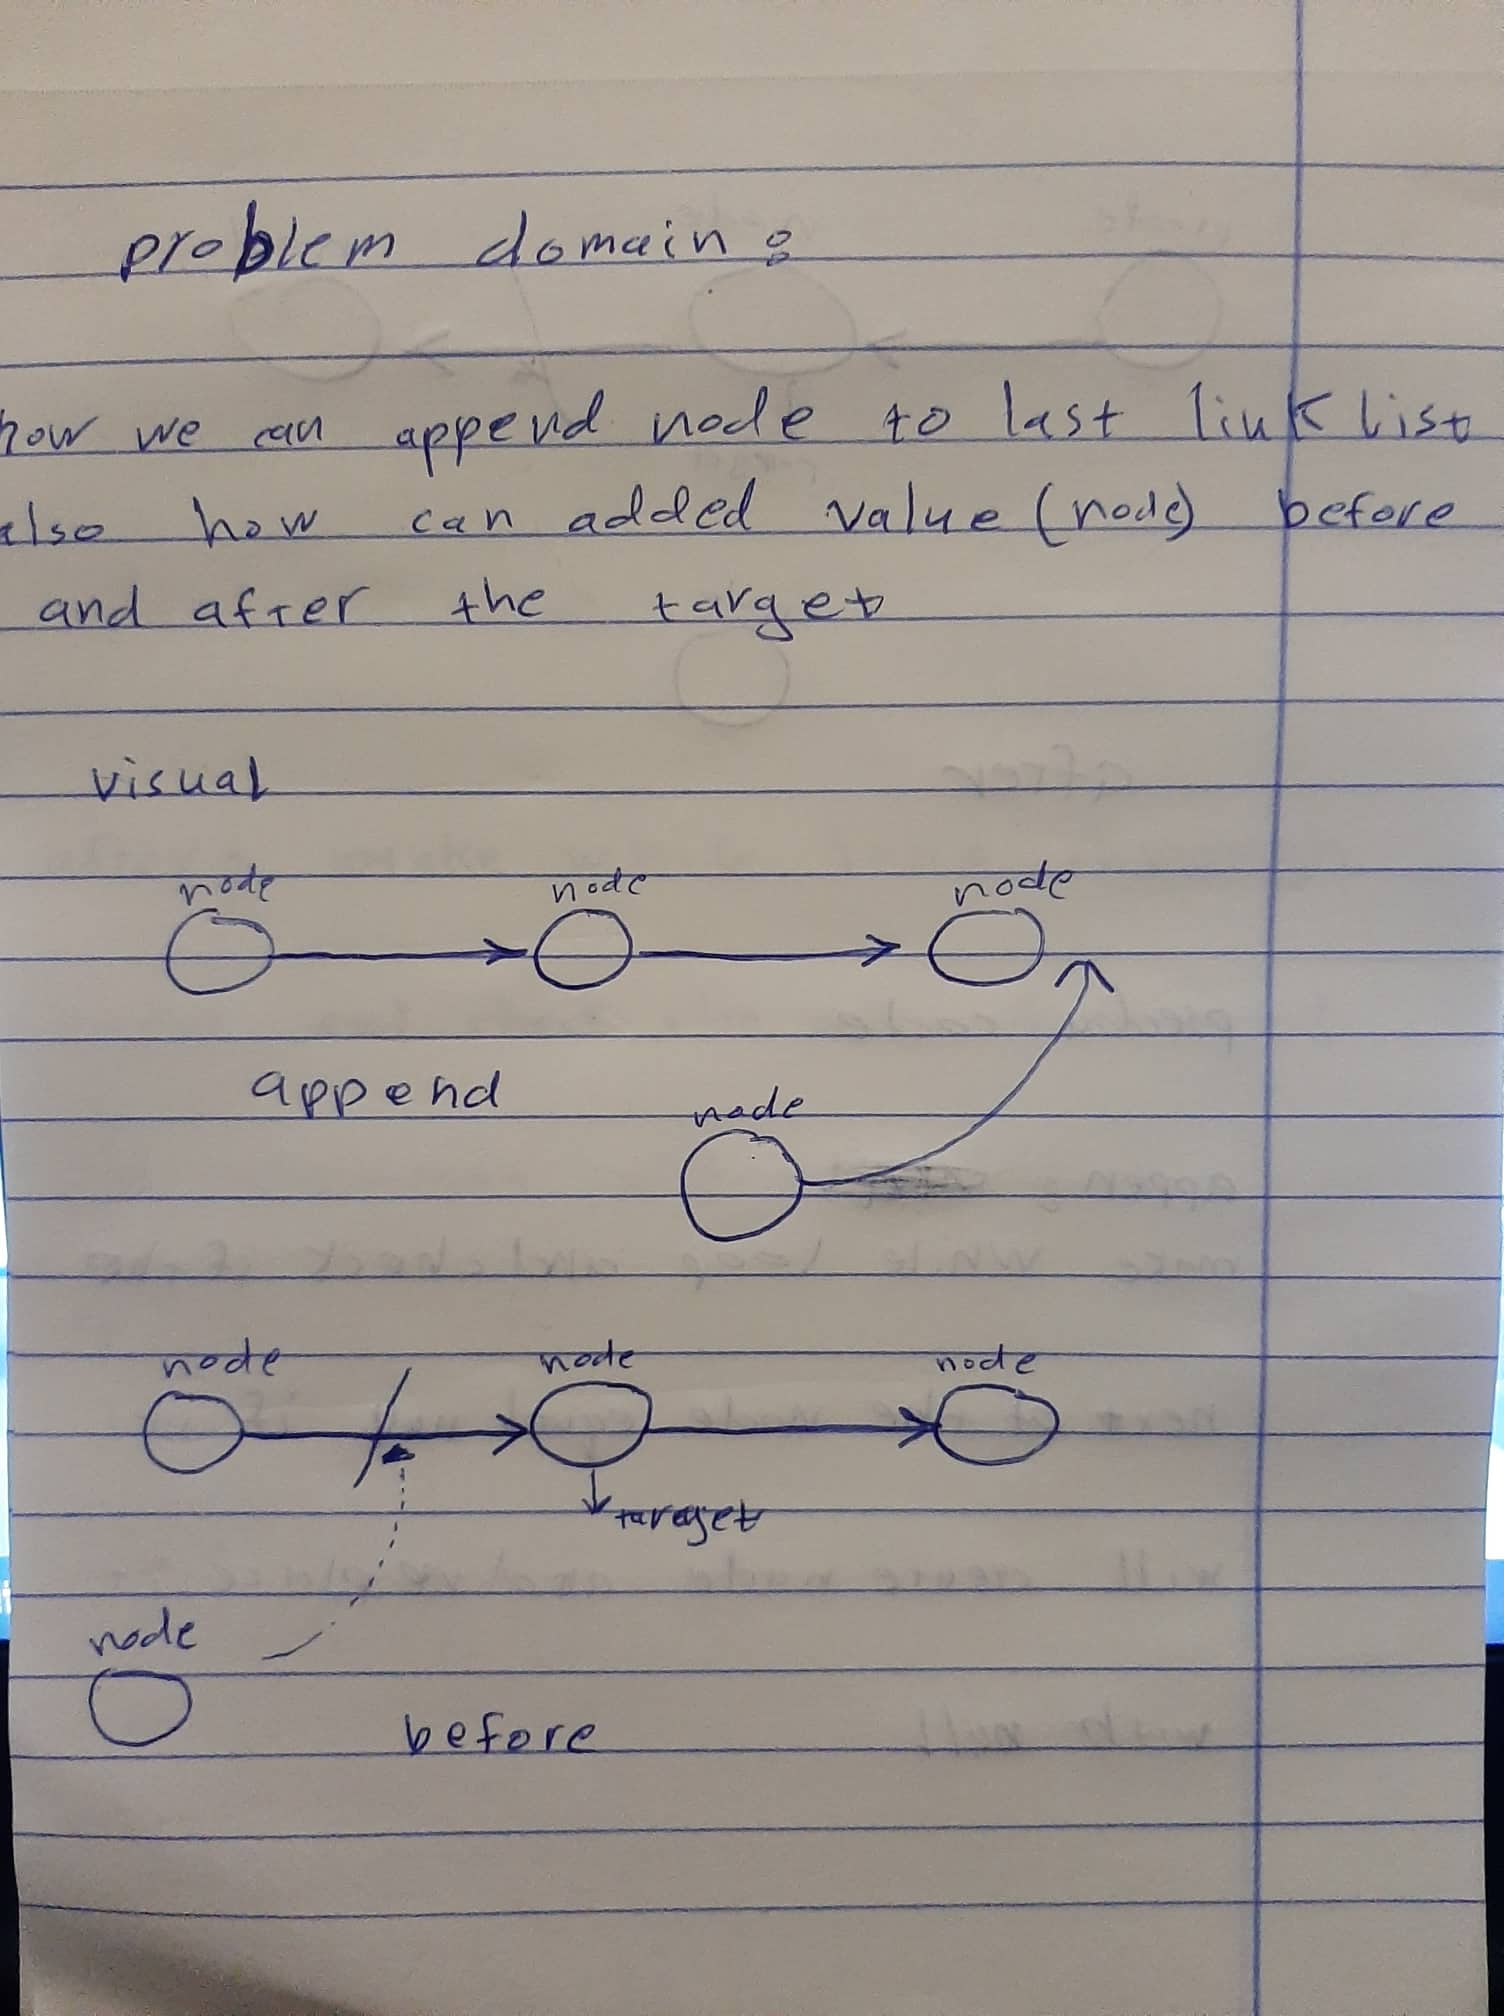 problem domain:
how we can append node to last link list
also how can added value (node) before
and after the target
visual
node node node
append
node
node node node
target
node
before